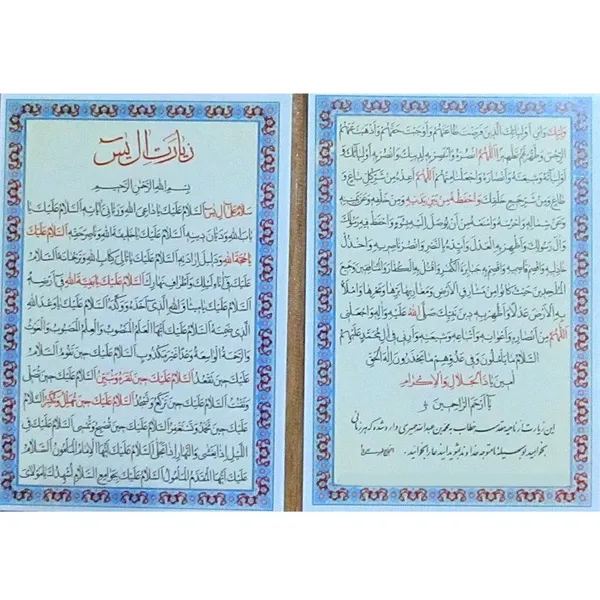 زیارت آل یس
بِسْمِ اللهِ الرَّحْمٰنِ الرَّحیمِ
سَلامٌ عَلىٰ آلِ یس اَلسَّلامُ عَلَیْكَ یا داعِیَ اللهِ وَرَبّانِیَّ آیاتِهِ اَلسَّلامُ عَلَیْكَ یا
بابَ اللهِ وَدَیّانَ دینِهِ اَلسَّلامُ عَلَیْكَ یا خَلیفَةَ اللهِ وَناصِرَ حَقِّهِ اَلسَّلامُ عَلَیْكَ
یا حُجَّةَ اللهِ وَدَلیلَ اِرادَتِهِ اَلسَّلامُ عَلَیْكَ یا تالِیَ كِتابِ اللهِ وَتَرْجُمانَهُ اَلسَّلامُ
عَلَیْكَ فی آناءِ لَیْلِكَ وَاَطْرافِ نَهارِكَ اَلسَّلامُ عَلَیْكَ یا بَقِیَّةَ اللهِ فی اَرْضِهِ
اَلسَّلامُ عَلَیْكَ یا میثاقَ اللهِ الَّذی اَخَذَهُ وَوَكَّدَهُ اَلسَّلامُ عَلَیْكَ یا وَعْدَ اللهِ
الَّذی ضَمِنَهُ اَلسَّلامُ عَلَیْكَ اَیُّهَا الْعَلَمُ الْمَنْصُوبُ وَالْعِلْمُ الْمَصْبُوبُ وَالْغَوْثُ
وَالرَّحْمَةُ الْواسِعَةُ وَعْداً غَیْرَ مَكْذُوبٍ اَلسَّلامُ عَلَیْكَ حینَ تَقُومُ اَلسَّلامُ
عَلَیْكَ حینَ تَقْعُدُ اَلسَّلامُ عَلَیْكَ حینَ تَقْرَءُ وَتُبَیِّنُ اَلسَّلامُ عَلَیْكَ حینَ تُصَلّی
وَتَقْنُتُ اَلسَّلامُ عَلَیْكَ حینَ تَرْكَعُ وَتَسْجُدُ اَلسَّلامُ عَلَیْكَ حینَ تُهَلِّلُ وَتُكَبِّرُ اَلسَّلامُ
عَلَیْكَ حینَ تَحْمَدُ وَتَسْتَغْفِرُ اَلسَّلامُ عَلَیْكَ حینَ تُصْبِحُ وَتُمْسی اَلسَّلامُ عَلَیْكَ فِی
اللَّیْلِ اِذا یَغْشىٰ وَالنَّهارِ اِذا تَجَلّىٰ اَلسَّلامُ عَلَیْكَ اَیُّهَا الْاِمامُ الْمَأْمُونُ اَلسَّلامُ
عَلَیْكَ اَیُّهَا الْمُقَدَّمُ الْمَأْمُولُ اَلسَّلامُ عَلَیْكَ بِجَوامِعِ السَّلامِ اُشْهِدُكَ یا مَوْلایَ
وَلِیِّكَ وَابْنِ اَوْلِیائِكَ الَّذینَ فَرَضْتَ طاعَتَهُمْ وَاَوْجَبْتَ حَقَّهُمْ وَاَذْهَبْتَ عَنْهُمُ
الرِّجْسَ وَطَهَّرْتَهُمْ تَطْهیراً اَللّٰهُمَّ انْصُرْهُ وَانْتَصِرْ بِهِ لِدینِكَ وَانْصُرْ بِهِ اَوْلِیائَكَ وَ
اَوْلِیائَهُ وَشیعَتَهُ وَاَنْصارَهُ وَاجْعَلْنا مِنْهُمْ اَللّٰهُمَّ اَعِذْهُ مِنْ شَرِّ كُلِّ باغٍ وَ
طاغٍ وَمِنْ شَرِّ جَمیعِ خَلْقِكَ وَاحْفَظْهُ مِنْ بَیْنِ یَدَیْهِ وَمِنْ خَلْفِهِ وَعَنْ یَمینِهِ
وَعَنْ شِمالِهِ وَاحْرُسْهُ وَامْنَعْهُ مِنْ اَنْ یُوصَلَ اِلَیْهِ بِسُوءٍ وَاحْفَظْ فیهِ رَسُولَكَ
وَآلَ رَسُولِكَ وَاَظْهِرْ بِهِ الْعَدْلَ وَاَیِّدْهُ بِالنَّصْرِ وَانْصُرْ ناصِریهِ وَاخْذُلْ
خاذِلیهِ وَاقْصِمْ قاصِمیهِ وَاقْصِمْ بِهِ جَبابِرَةَ الْكُفْرِ وَاقْتُلْ بِهِ الْكُفّارَ وَالْمُنافِقینَ وَجَمیعَ
الْمُلْحِدینَ حَیْثُ كانُوا مِنْ مَشارِقِ الْاَرْضِ وَمَغارِبِها بَرِّها وَبَحْرِها وَامْلَأْ
بِهِ الْاَرْضَ عَدْلاً وَاَظْهِرْ بِهِ دینَ نَبِیِّكَ صَلَّى اللهُ عَلَیْهِ وَآلِهِ وَاجْعَلْنِی
اَللّٰهُمَّ مِنْ اَنْصارِهِ وَاَعْوانِهِ وَاَتْباعِهِ وَشیعَتِهِ وَاَرِنی فی آلِ مُحَمَّدٍ عَلَیْهِمُ
السَّلامُ ما یَأْمُلُونَ وَفی عَدُوِّهِمْ ما یَحْذَرُونَ اِلٰهَ الْحَقِّ
آمینَ یا ذَا الْجَلالِ وَالْاِكْرامِ
یا اَرْحَمَ الرّاحِمینَ
این زیارت از ناحیه مقدسه خطاب به محمد بن عبدالله حمیری وارد شده که هر زمانی
بخواهید بوسیله ما متوجه خداوند شوید اینطور ما را بخوانید.